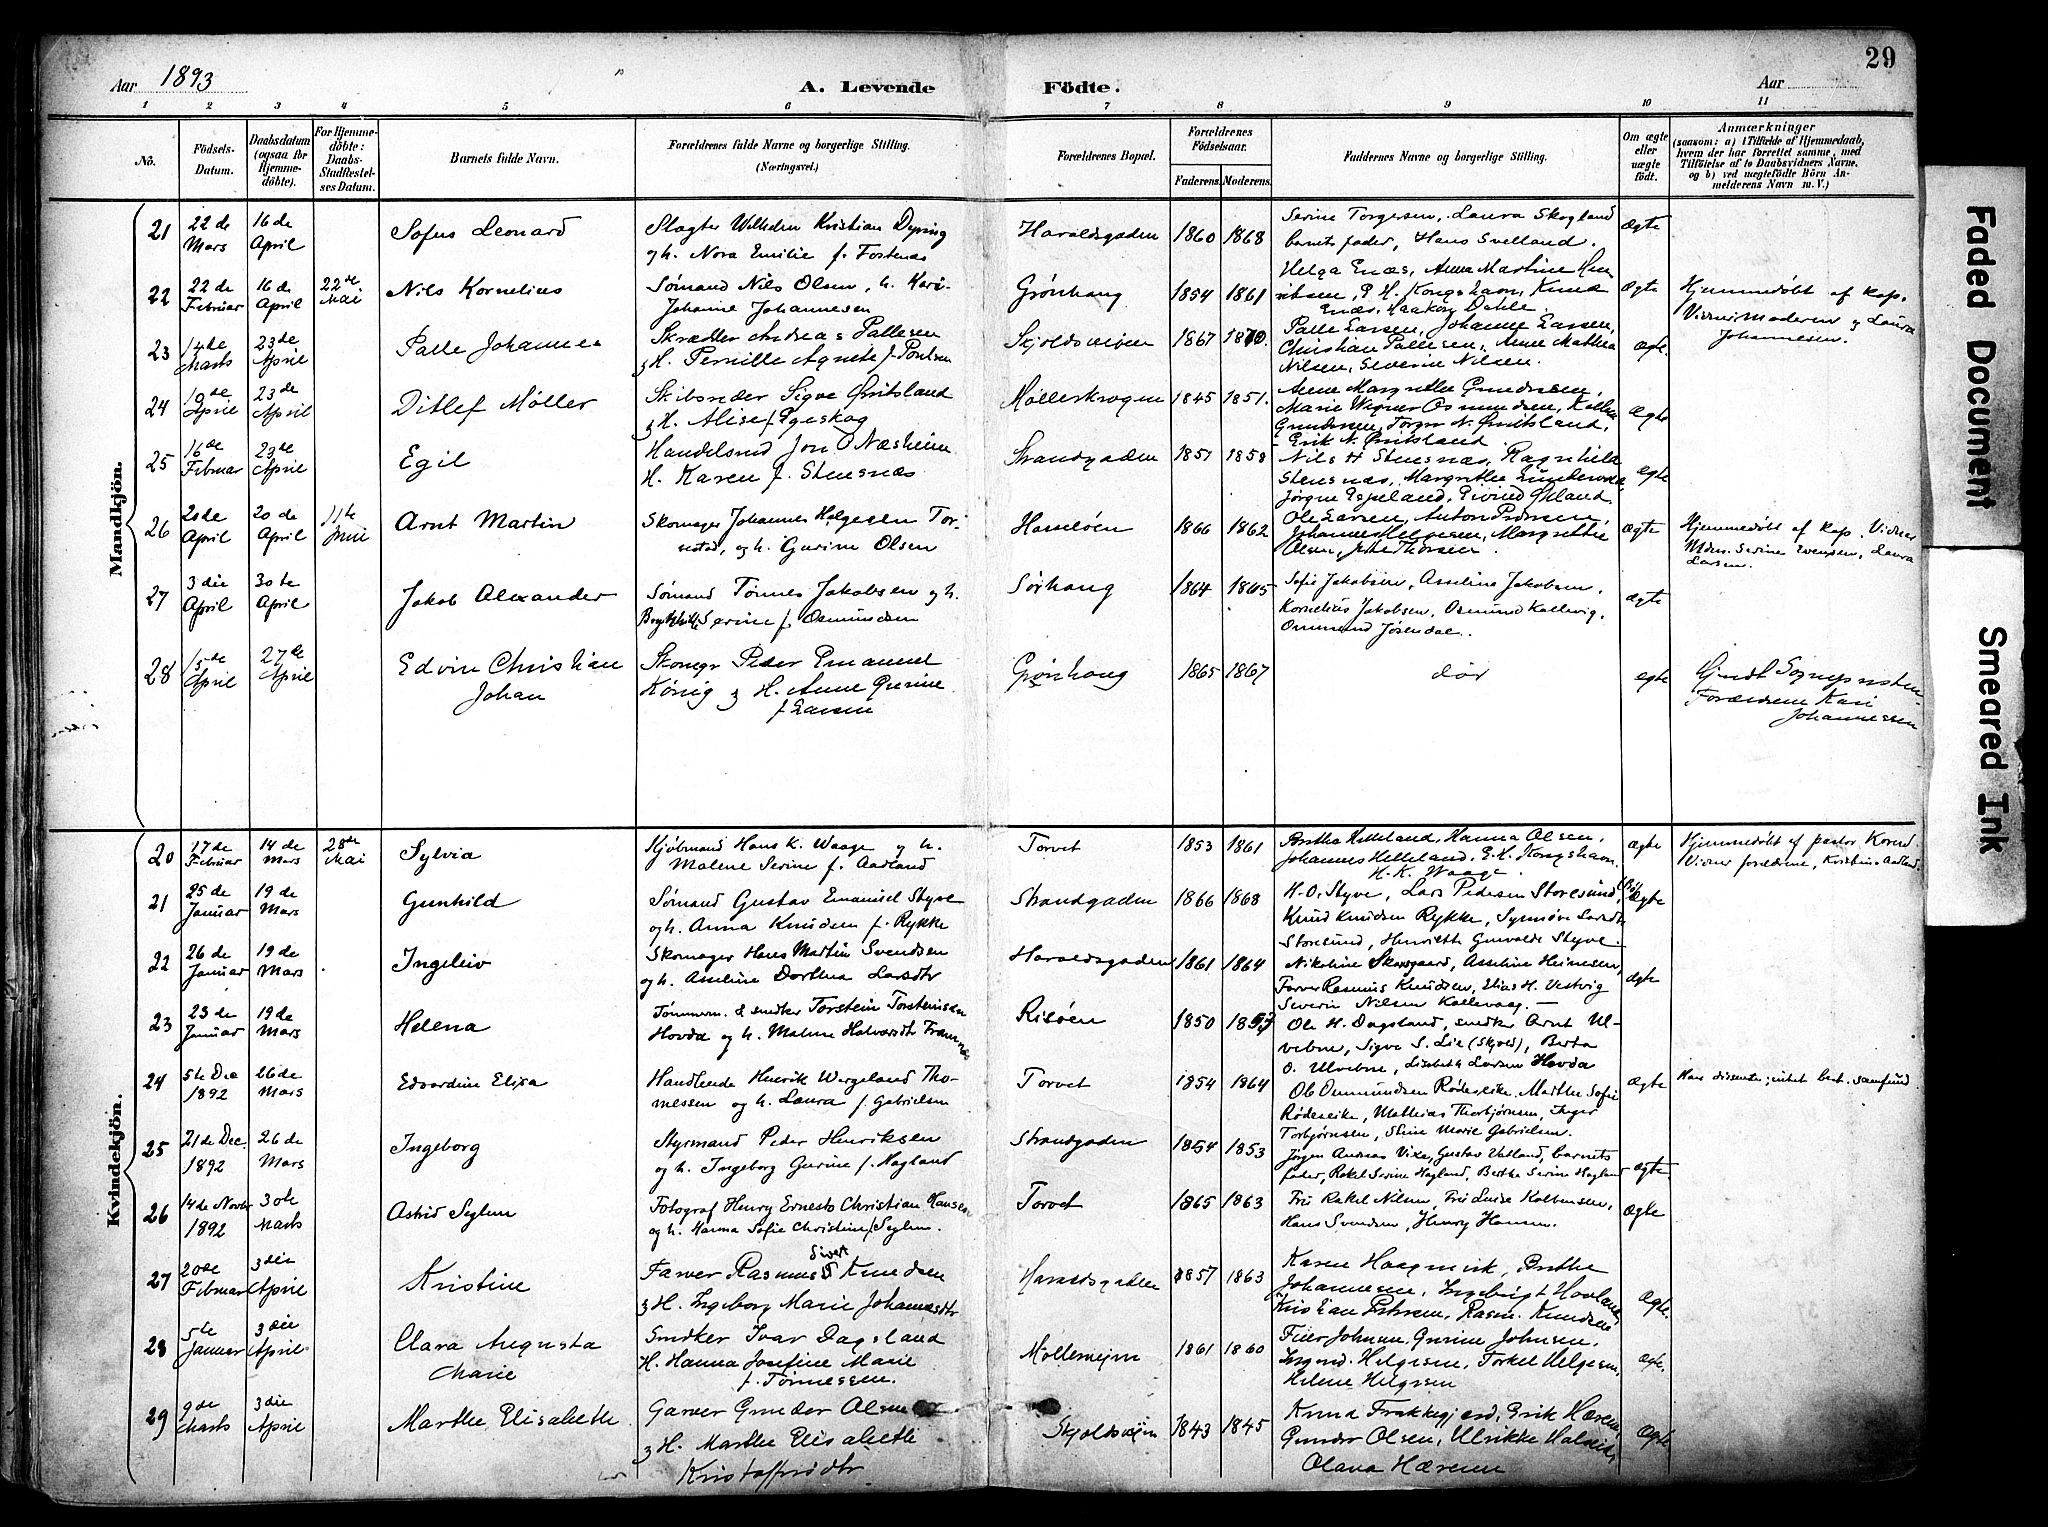 29
Aar 1893
A. Levende Födte.
Aar
1 2 3 4 5 6 7 8 9 10 11
No.
Födsels-Datum.
Daabsdatum (ogsaa for Hjemme-döbte).
For Hjemme-döbte: Daabs-Stadfæstel-ses Datum.
Barnets fulde Navn.
Forældrenes fulde Navne og borgerlige Stilling.
(Næringsvei.)
Forældrenes Bopæl.
Forældrenes Födselsaar.
Faderens. Moderens.
Faddernes Navne og borgerlige Stilling.
Om ægte eller uægte födt.
Anmærkninger
(saasom: a) i Tilfælde af Hjemmedaab, hvem der har forrettet samme, med Tilföielse af to Daabsvidners Navne, og b) ved uægtefödte Börn An-melderens Navn m. V.)
Mandkjön.
21 22de Mars 16de April Sofus Leonard Slagter Wilhelm Kristian Dyring og h. Nora Emilie f. Fostenæs Haraldsgaden 1860 1868 Serine Torgersen, Laura Skogland barnets fader, Hans Svelland. ægte
22 22de Februar 16de April 22de Mai Nils Kornelius Sømand Nils Olsen, h. Kari Johanne Johannesen Grønhaug 1854 1861 Helga Enæs, Anna Martine Hen riksen, E. H. Kongshavn, Knud Enæs, Haakon Dahle ægte Hjemmedøbt af kap. Vidner: Moderen og Laura Johannesen.
23 14de Marts 23de April Palle Johannes Skrædder Andreas Pallesen & H. Pernille Agnete f. Poulsen Skjoldsveien 1867 1870. Palle Larsen, Johanne Larsen, Christian Pallesen, Anne Mathea Nilsen, Severine Nilsen. ægte.
24 19de April 23de April Ditlef Møller Skibsreder Sigve Qvitsland & H. Alise f. Møllerkrogen 1845 1851. Anne Margrethe Gundersen, Marie Wegner Osmundsen, Gundersen, Torger N. Qvitsland, Erik N. Qvitsland ægte
25 16de Februar 23de April Egil Handelsmd Jon O Næsheim H. Karen f. Stensnæs Strandgaden 1851 1858 Nils H Stensnæs, Ragnhild Stensnæs, Margrethe Jørgine Espeland, Eivind Øvland ægte
26 20de April 20de April 11te Juni Arnt Martin Skomager Johannes Helgesen Tor-nestad, og h. Gurine Olsen Hasseløen 1866 1862 Ole Larsen, Anton Pedersen, Johannes Helgesen, Margrethe Olsen, Thorsen. ægte Hjemmedøbt af kap. Vidner Mdm. Serine Svendsen, Laura Larsen.
27 3die April 30te April Jakob Alexander Sømand Tønnes Jakobsen og h. Serine f. Osmundsen Sørhaug 1864 1865 Sofie Jakobsen, Asseline Jakobsen, Kornelius Jakobsen, Osmund Kallevig, Ommund Jøsendal. ægte
28 15de April 27de April Edvin Christian Johan Skomgr Peder Emanuel König & H. Anne Gurine f. Larsen Grønhaug 1865 1867 død ægte Forældrene Kari Johannessen
Kvindekjön.
20 17de Februar 14de Mars 28de Mai Sylvia Kjøbmand Hans K. Waage og h. Malene Serine f. Aadland Torvet 1853 1861 Berthe Helleland, Hanna Olsen, Johannes Helleland, E. H. Kongshavn H. K. Waage. ægte Hjemmedøbt af pastor Vidner forældrene, Kristine Aadland.
21 25de Januar 19de Mars Gunhild Sømand Gustav Emanuel Styve og h. Anna Knudsen f. Rykke Strandgaden 1866 1868 H. O. Styve, Lars Pedersen Storesund, Knud Knudsen Rykke, Synnøve Larsdtr Storesund, Henriette Styve. ægte
22 26de Januar 19de Mars Ingeleiv Skomager Hans Martin Svendsen og h. Asseline Dorthea Larsdtr Haraldsgaden 1861 1864 Nikoline Skaargaard, Asseline Heinesen, Farver Rasmus Knudsen, Elias H. Vestvig Severin Nilsen Kallevaag. ægte
23 23de Januar 19de Mars Helena Tømmerm. & snedker Torstein Torsteinsen Hovda og h. Malene Halvardsdtr Framnæs Risøen 1850 1857 Ole H. Dagsland, snedker Arnt Ul-vebne, Sigve S. Lie (Skjold), Berta O. Ulvebne, Lisabeth Larsen Hovda
24 5te Dec 1892 26de Mars Edvardine Elisa Handlende Henrik Wergeland Tho-messen og h. Laura f. Gabrielsen Torvet 1854 1864 Ole Ommundsen Rødeseike, Marthe Sofie Rødeseike, Mathias Thorbjørnsen, Inger Torbjørnsen, Stine Marie Gabrielsen. ægte Han dissenter; intet best. samfund
25 21de Dec. 1892 26de Mars Ingeborg Styrmand Peder Henriksen og h. Ingeborg Gurine f. Hagland Strandgaden 1854 1853 Jørgen Andreas Vike, Gustav Vatland, barnets fader, Rakel Serine Hagland, Berthe Serine Hagland ægte
26 14de Novbr 1892 30te Marts Astrid Seglem Fotograf Henry Ernesto Christian Hansen og h. Hanna Sofie Christine f. Seglem. Torvet 1865 1863 Fru Rakel Nilsen, Fru Luise Kolbensen, Hans Svendsen, Henry Hansen. ægte
27 20de Februar 3die April Kristine Farver Rasmus Sivert Knudsen & H. Ingeborg Marie Johannesdtr Haraldsgaden 1857 1863 Karen Haagenvik, Berthe Johannesen, Ingebrigt Hovland, Kristian Petersen, Rasm. Knudsen ægte
28 5te Januar 3die April Clara Augusta Marie Snedker Ivar Dagsland H. Hanna Josefine Marie f. Tønnessen. Mølleveien 1861 1860 Peter Johnsen, Gurine Johnsen, Helgesen, Torkel Helgesen, Helene Helgesen ægte.
29 9de Marts 3die April Marthe Elisabeth Garver Gunder Olsen & H. Marthe Elisabeth Kristoffersdtr Skjoldsveien 1843 1845 Knud Frakkagjerd, Erik Hæreim, Gunder Olsen, Ulrikke Olava Hæreim ægte
Faded Document
Smeared Ink